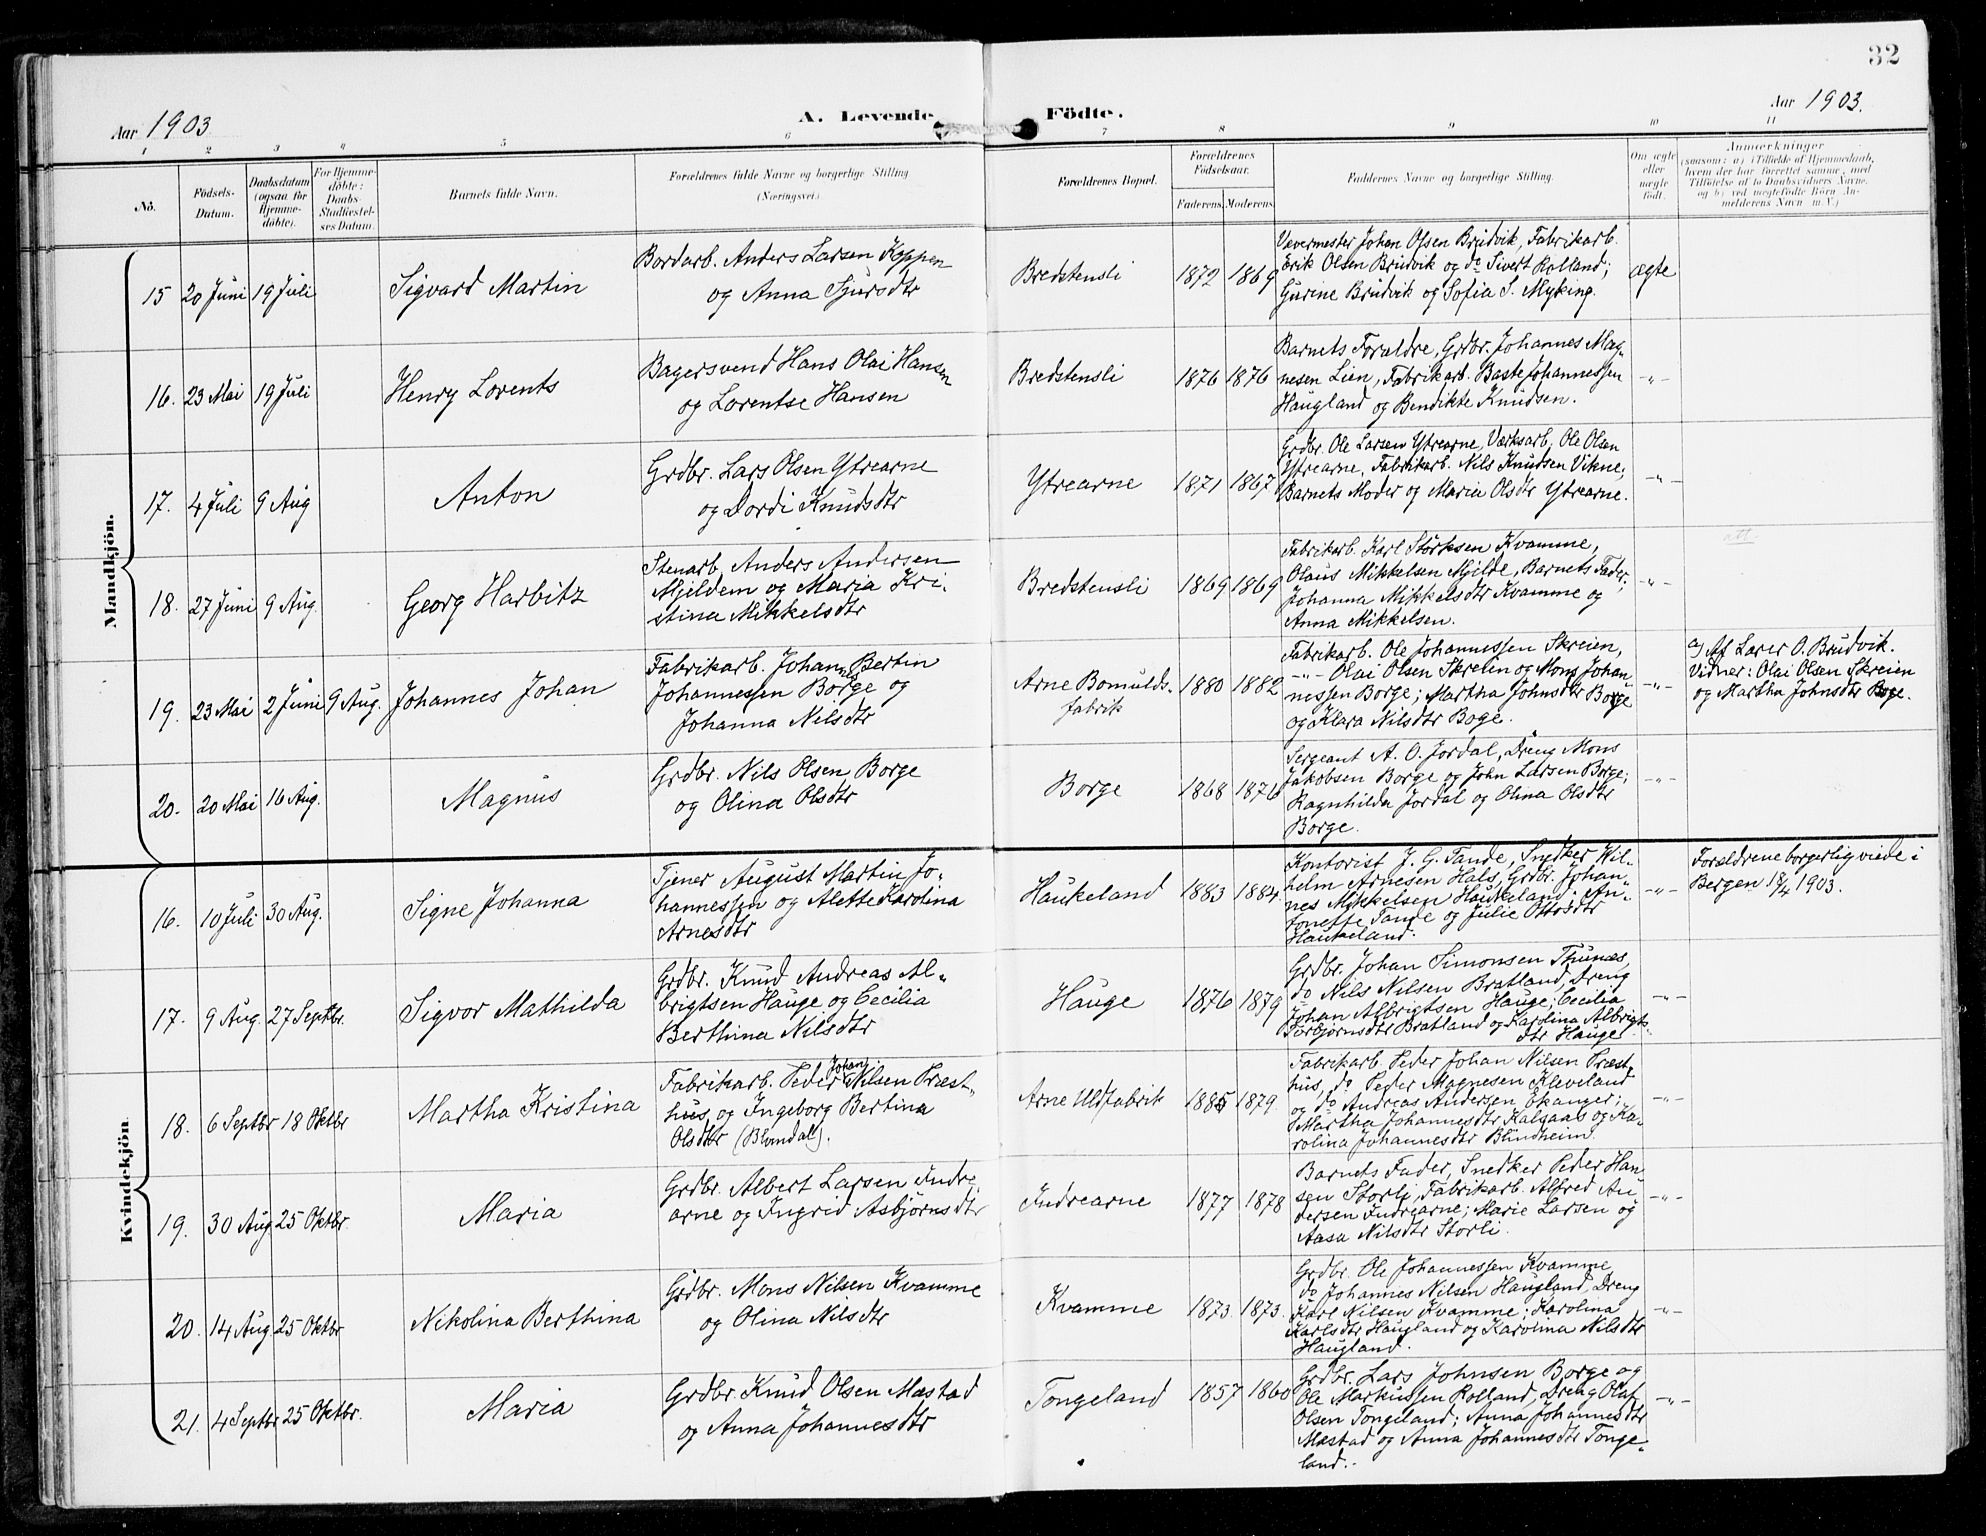 32
Aar 1903
A. Levende
Födte.
Aar 1903.
1 2 3 4 5 6 7 8 9 10 11
No.
Födsels-Datum.
Daabsdatum (ogsaa for Hjemmedöbte).
For Hjemmedöbte: Daabs-Stadfæstelses Datum.
Barnets fulde Navn.
Forældrenes fulde Navne og borgerlige Stilling
(Næringsvei.)
Forældrenes Bopæl.
Forældrenes Födselsaar.
Faderens. Moderens.
Faddernes Navne og borgerlige Stilling.
Om ægte eller uægte födt.
Anmærkninger
(saasom: a) i Tilfælde af Hjemmedaab, hvem der har forrettet samme, med Tilföielse af to Daabsvidners Navne, og b) ved uægtefödte Börn Anmelderens Navn m. V.)
Mandkjön.
15 20 Juni 19 Juli Sigvard Martin
Bordarb. Anders Larsen Koppen
og Anna Sjursdtr
Bredstensli 1872 1869
Vævermester Johan Olsen Brudvik, Fabrikarb.
Erik Olsen Brudvik og do Sivert Rolland;
Gurine Brudvik og Sofia S. Myking.
ægte
16. 23 Mai 19 Juli Henry Lorents
Bagersvend Hans Olai Hansen
og Lorentse Hansen
Bredstensli 1876 1876
Barnets Forældre, Grdbr. Johannes Mag-
nesen Lien, Fabrikarb. Baste Johannessen
Haugland og Bendikte Knudsen.
-"-
17. 4 Juli 9 Aug Anton
Grdbr. Lars Olsen Ytrearne
og Dordi Knudsdtr
Ytrearne 1871 1867
Grdbr. Ole Larsen Ytrearne, Værksarb. Ole Olsen
Ytrearne, Fabrikarb. Nils Knudsen Vikne;
Barnets Moder og Maria Olsdtr Ytrearne.
-"-
att
18. 27 Juni 9 Aug. Georg Harbitz
Stenarb. Anders Andersen
Mjeldem og Maria Kri-
stina Mikkelsdtr
Bredstensli 1869 1869
Fabrikarb. Karl Störksen Kvamme,
Olaus Mikkelsen Mjelde, Barnets Fader;
Johanna Mikkelsdtr Kvamme og
Anna Mikkelsen.
-"-
19. 23 Mai 2 Juni 9 Aug. Johannes Johan
Fabrikarb. Johannes Bertin
Johannessen Borge og
Johanna Nilsdtr
Arne Bomulds-
fabrik
1880 1882
Fabrikarb. Ole Johannessen Skreien,
-"- Olai Olsen Skreien og Mons Johan-
nessen Borge; Martha Johnsdtr Borge
og Klara Nilsdtr Boge.
-"-
a) Af Lærer O. Brudvik.
Vidner: Olai Olsen Skreien
og Martha Johnsdtr Boge.
20. 20 Mai 16 Aug. Magnus
Grdbr. Nils Olsen Borge
og Olina Olsdtr
Borge 1868 1876
Sergeant A. O. Jordal, Dreng Mons
Jakobsen Borge og John Larsen Borge;
Ragnhilda Jordal og Olina Olsdtr
Borge.
-"-
Kvindekjön
16. 10 Juli 30 Aug. Signe Johanna
Tjener August Martin Jo-
hannessen og Alette Karolina
Arnesdtr
Haukeland 1883 1884.
Kontorist J. G. Tande, Snedker Wil-
helm Arnesen Hals, Grdbr. Johan-
nes Mikkelsen Haukeland; An-
tonette Tande og Julie Ottosdtr
Haukeland.
-"-
Forældrene borgerlig viede i
Bergen 18/4 1903.
17. 9 Aug. 27 Septbr. Sigvor Mathilda
Grdbr. Knud Andreas Al-
brigtsen Hauge og Cecilia
Berthina Nilsdtr
Hauge 1876 1879
Grdbr. Johan Simonsen Thunæs,
do Nils Nilsen Bratland, Dreng
Johan Albrigtsen Hauge; Cecilia
Torbjørnsdtr Bratland og Karolina Albrigts-
dtr Hauge
-"-
18. 6 Septbr 18 Oktbr Martha Kristina
Fabrikarb. Peder Johan Nilsen Præst-
hus, og Ingeborg Bertina
Olsdtr (Blomdal).
Arne Uldfabrik 1885 1879.
Fabrikarb. Peder Johan Nilsen Præst-
hus, do Peder Magnesen Kleveland
og do Andreas Andersen Ekanger;
Martha Johannesdtr Kalsaas og Ka-
rolina Johannesdtr Blindheim.
-"-
19. 30 Aug 25 Oktbr. Maria
Grdbr. Albert Larsen Indre
arne og Ingrid Asbjørnsdtr
Indrearne 1877 1878
Barnets Fader, Snedker Peder Han-
sen Storli, Fabrikarb. Alfred An-
dersen Indrearne; Marie Larsen og
Aasa Nilsdtr Storli.
-"-
20. 14 Aug. 25 Oktbr Nikolina Berthina
Grdbr. Mons Nilsen Kvamme
og Olina Nilsdtr
Kvamme 1873 1873.
Grdbr. Ole Johannessen Kvamme,
do Johannes Nilsen Haugland, Dreng
Karl Nilsen Kvamme; Karolina
Karlsdtr Haugland og Karolina Nilsdtr
Haugland.
-"-
21. 4 Septbr 25 Oktbr. Maria
Grdbr. Knud Olsen Mæstad
og Anna Johannesdtr
Tongeland 1857 1860
Grdbr. Lars Johnsen Borge og
Ole Markussen Rolland, Dreng Olaf
Olsen Tongeland; Anna Johannesdtr
Mæstad og Anna Johannesdtr Tonge-
land.
-"-